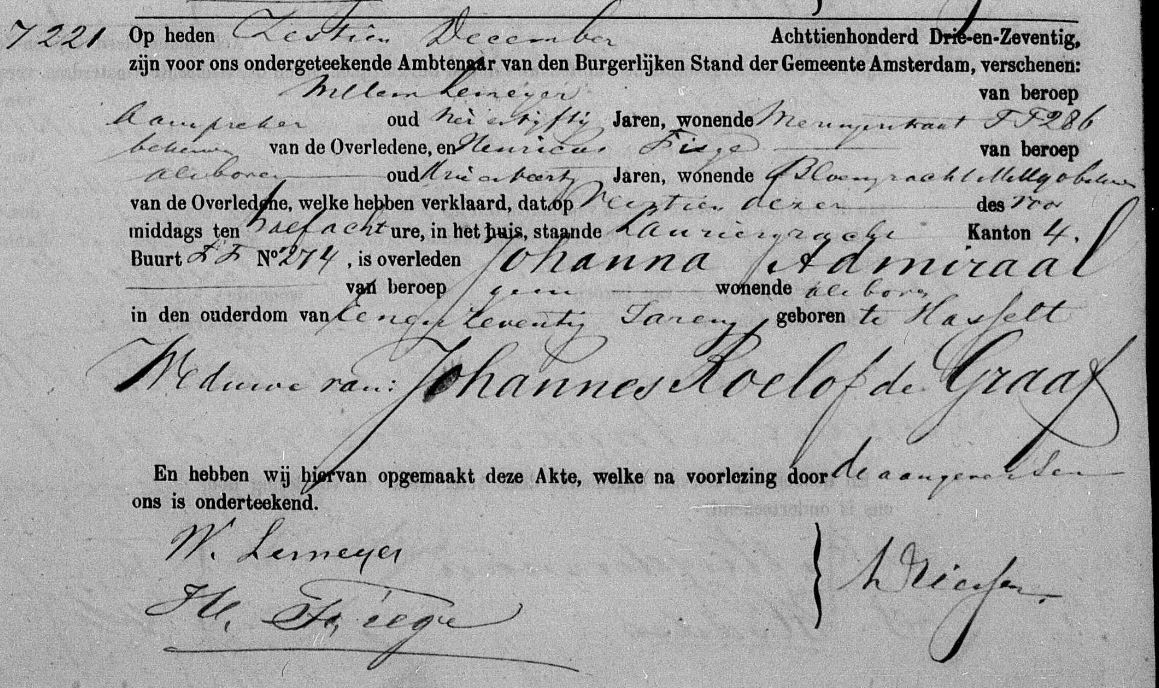 7221 Op heden Zestien December Achttienhonderd Drie-en-Zeventig,
zijn voor ons ondergeteekende Ambtenaar van den Burgerlijken Stand der Gemeente Amsterdam, verschenen:
Willem Lemeyer van beroep
oud Jaren, wonende FF 286
bekende van de Overledene, en Henricus van beroep
als boven oud Jaren, wonende Bloemgracht bekende
van de Overledene, welke hebben verklaard, dat op Veertien dezer des voor
middags ten half acht ure, in het huis, staande Lauriergracht Kanton 4.
Buurt FF No 274, is overleden Johanna Admiraal
van beroep geen wonende als boven
in den ouderdom van Zeventig Jaren, geboren te Hasselt
Weduwe van: Johannes Roelof de Graaf
En hebben wij hiervan opgemaakt deze Akte, welke na voorlezing door de aangevers en
ons is onderteekend.
W. Lemeyer